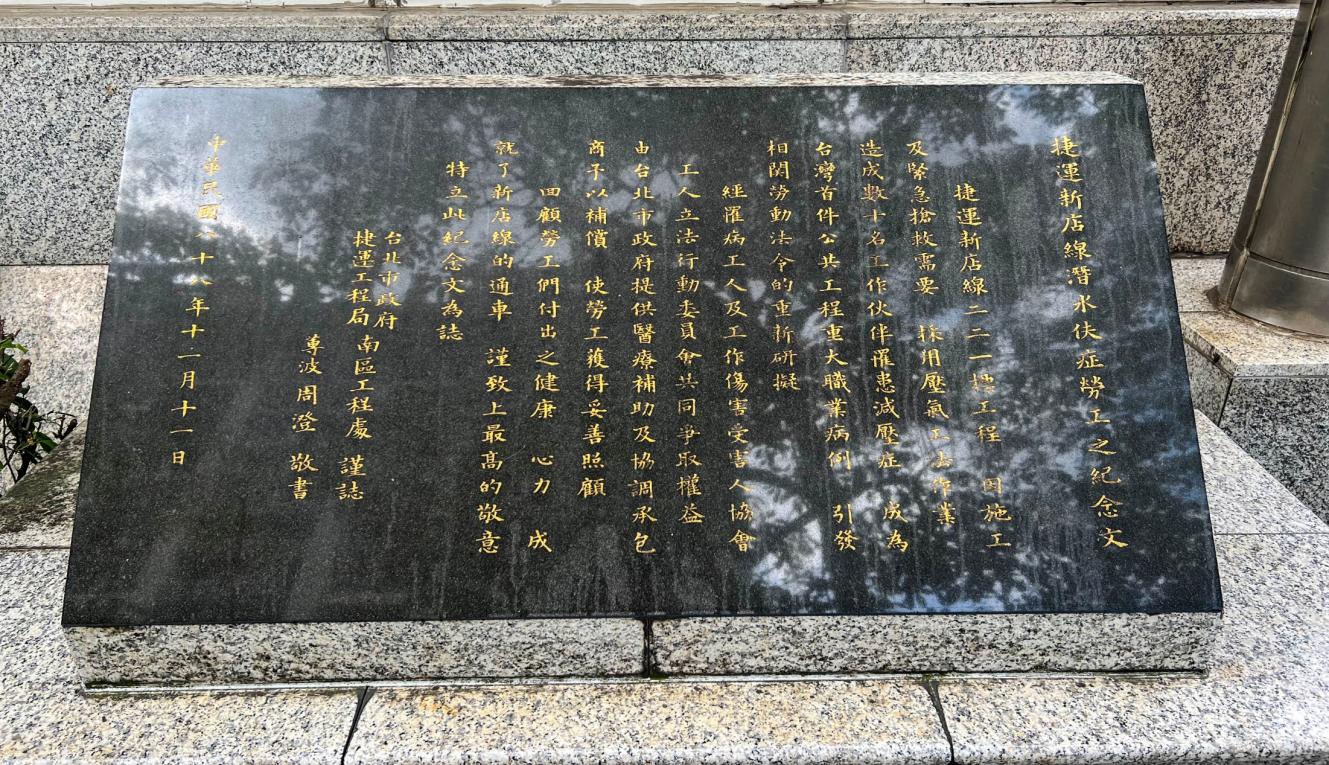 捷運新店線潛水伕症勞工之紀念文
捷運新店線二二一標工程 因施工
及緊急搶救需要 採用壓氣工法作業
造成數十名工作伙伴罹患減壓症 成為
台灣首件公共工程重大職業病例 引發
相關勞動法令的重新研擬
經罹病工人及工作傷害受害人協會
工人立法行動委員會共同爭取權益
由台北市政府提供醫療補助及協調承包
商予以補償 使勞工獲得妥善照顧
回顧勞工們付出之健康 心力 成
就了新店線的通車 謹致上最高的敬意
特立此紀念文為誌
台北市政府
捷運工程局南區工程處 謹誌
專波周澄 敬書
中華民國八十八年十二月十一日